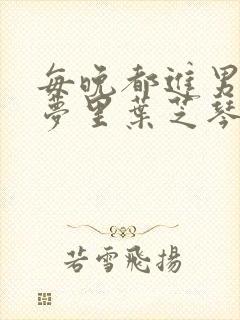 每晚都進男
夢里葉芝琴
若雪飛揚